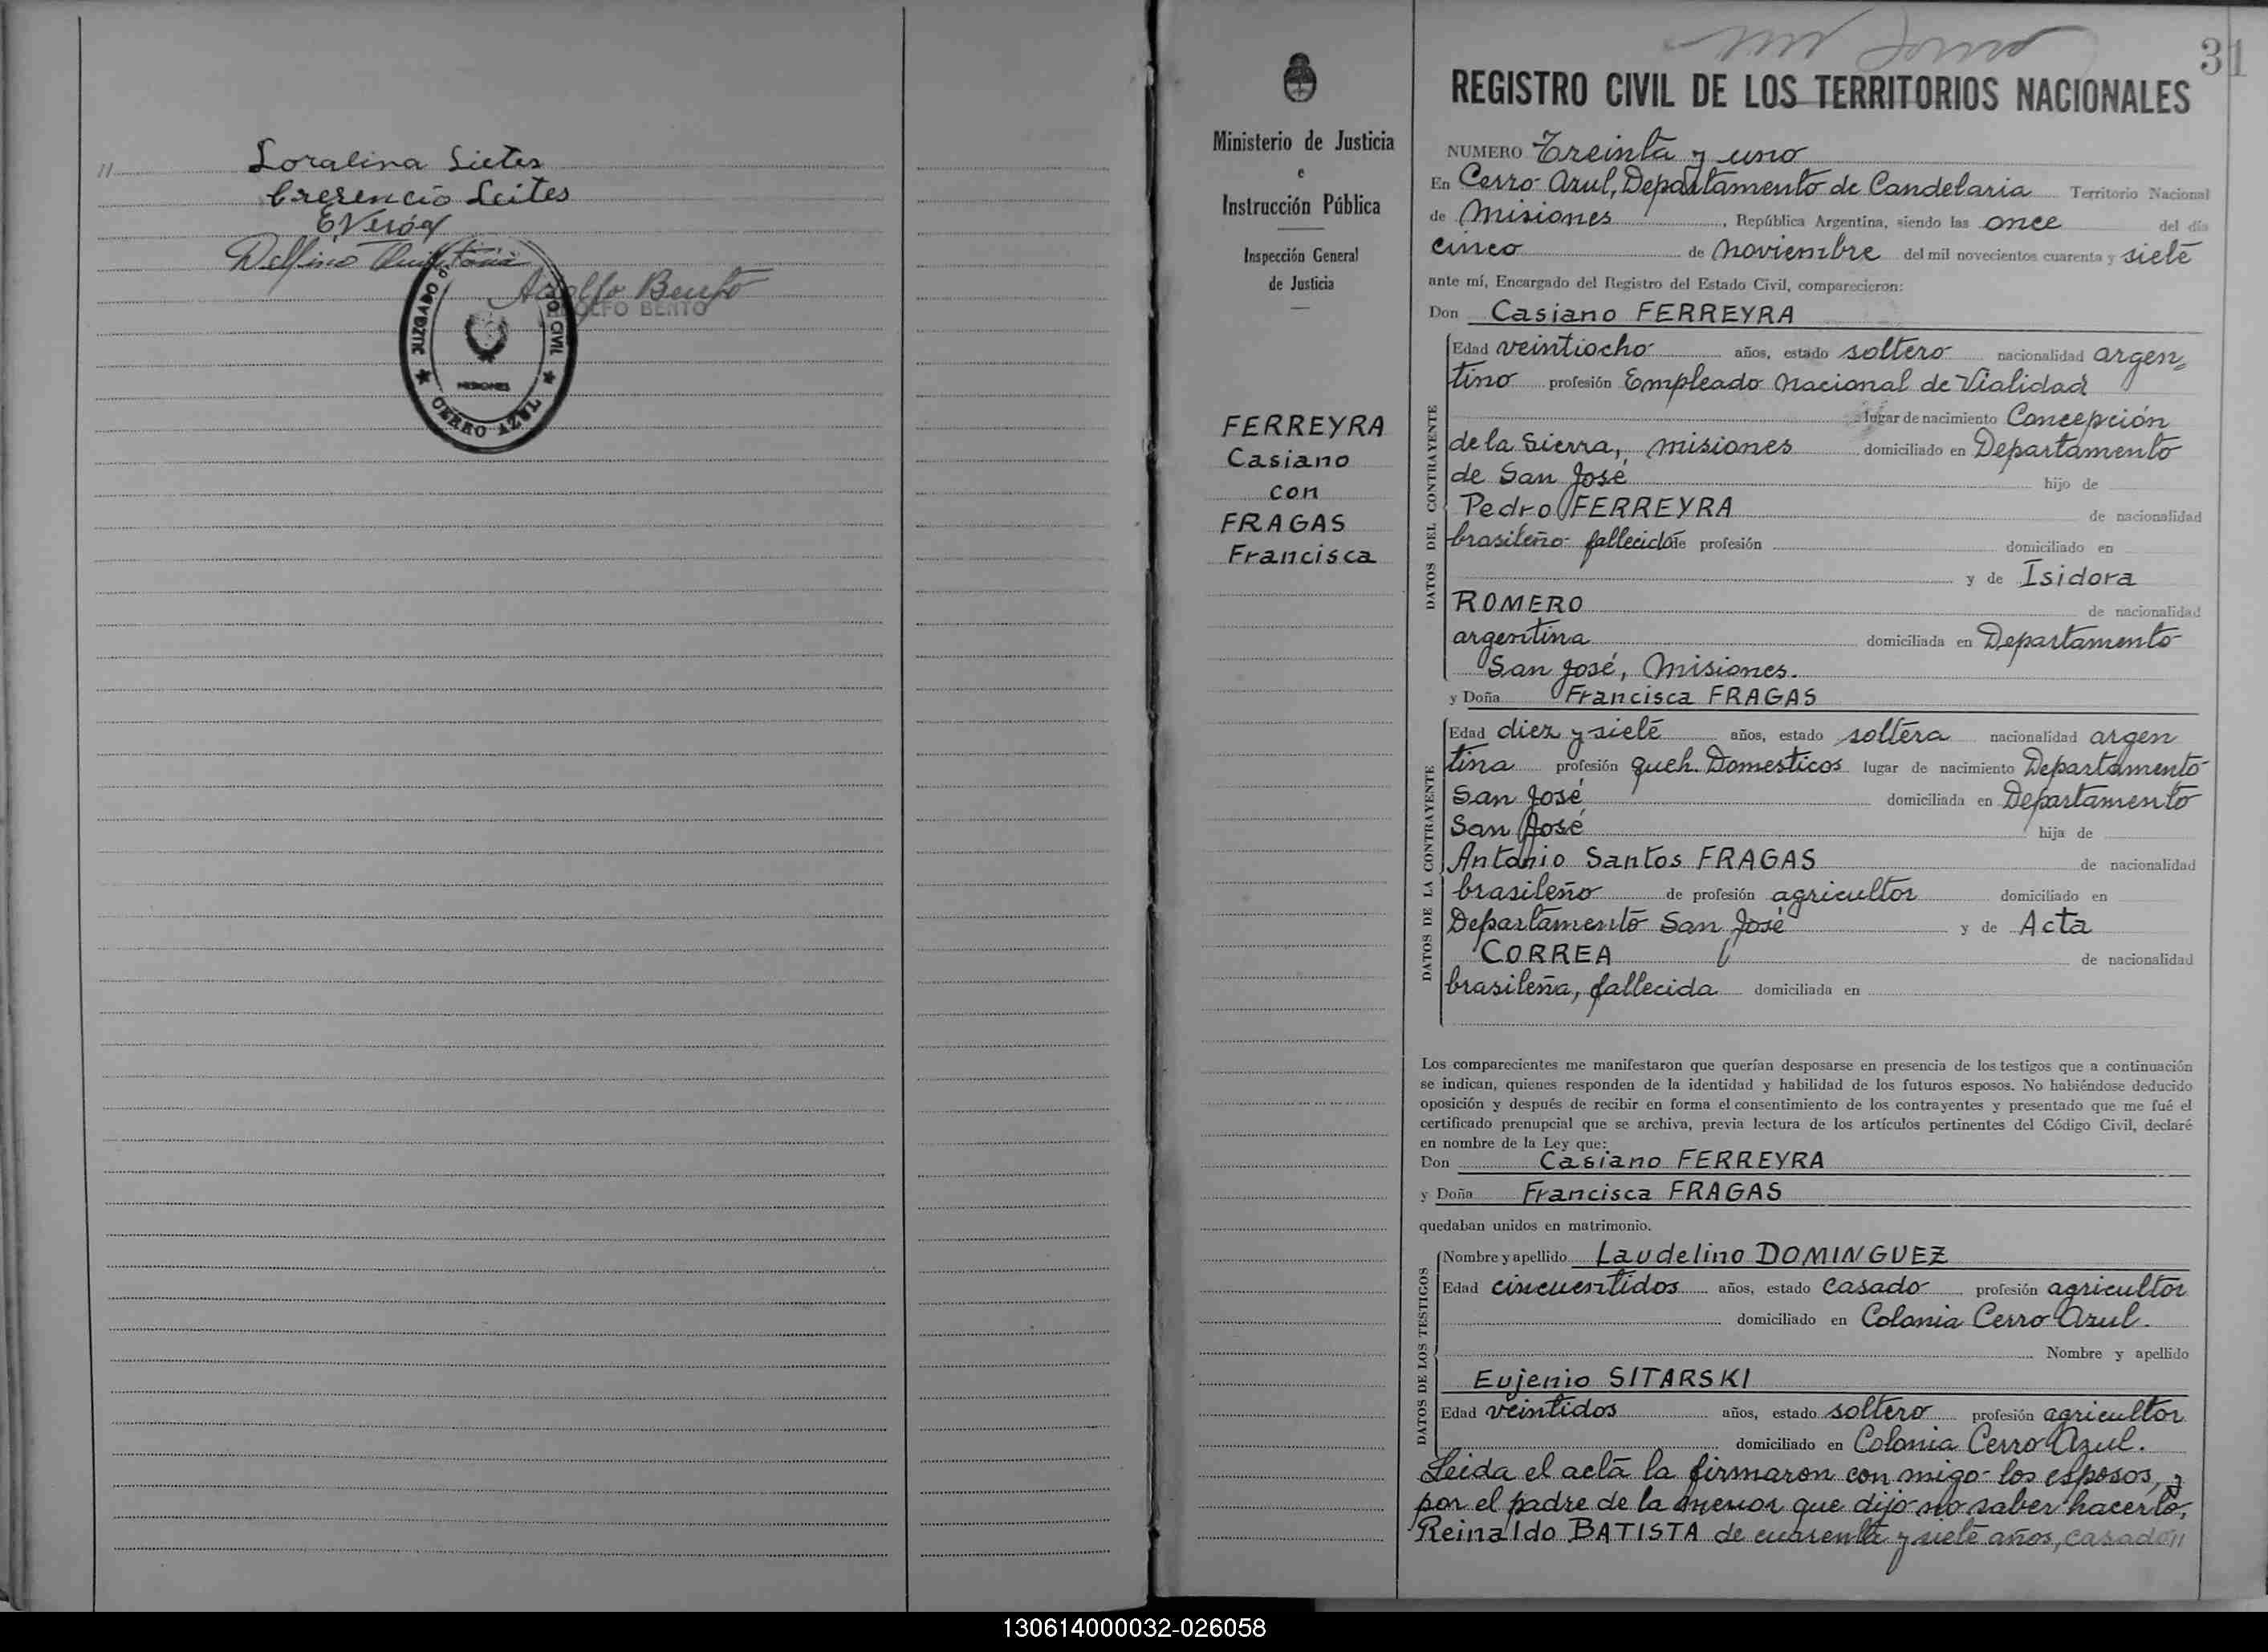 Loralina Sietes
Cresencio Leites
EVerón
Delfino
Adolfo Bento
ADOLFO BENTO
JUZGADO
CIVIL
MISIONES
CERRO AZUL
31
Ministerio de Justicia
e
Instrucción Pública
Inspección General
de Justicia
FERREYRA
Casiano
con
FRAGAS
Francisca
REGISTRO CIVIL DE LOS TERRITORIOS NACIONALES
NUMERO Treinta y uno
En Cerro Azul, Departamento de Candelaria Territorio Nacional
de Misiones, República Argentina, siendo las once del día
cinco de noviembre del mil novecientos cuarenta y siete
ante mí, Encargado del Registro del Estado Civil, comparecieron:
Don Casiano FERREYRA
DATOS DEL CONTRAYENTE
Edad veintiocho años, estado soltero nacionalidad argen=
tino profesión Empleado Nacional de Vialidad
lugar de nacimiento Concepción
de la Sierra, Misiones domiciliado en Departamento
de San José hijo de
Pedro FERREYRA de nacionalidad
brasileño fallecido de profesión domiciliado en
y de Isidora
ROMERO de nacionalidad
argentina domiciliada en Departamento
San José, Misiones.
y Doña Francisca FRAGAS
DATOS DE LA CONTRAYENTE
Edad diez y siete años, estado soltera nacionalidad argen
tina profesión queh. Domesticos lugar de nacimiento Departamento
San José domiciliada en Departamento
San José hija de
Antonio Santos FRAGAS de nacionalidad
brasileño de profesión agricultor domiciliado en
Departamento San José y de Acta
CORREA de nacionalidad
brasileña, fallecida domiciliada en
Los comparecientes me manifestaron que querían desposarse en presencia de los testigos que a continuación
se indican, quienes responden de la identidad y habilidad de los futuros esposos. No habiéndose deducido
oposición y después de recibir en forma el consentimiento de los contrayentes y presentado que me fué el
certificado prenupcial que se archiva, previa lectura de los artículos pertinentes del Código Civil, declaré
en nombre de la Ley que:
Don Casiano FERREYRA
y Doña Francisca FRAGAS
quedaban unidos en matrimonio.
DATOS DE LOS TESTIGOS
Nombre y apellido Laudelino DOMINGUEZ
Edad cincuentidos años, estado casado profesión agricultor
domiciliado en Colonia Cerro Azul.
Nombre y apellido
Eujenio SITARSKI
Edad veintidos años, estado soltero profesión agricultor
domiciliado en Colonia Cerro Azul.
Leida el acta la firmaron con migo los esposos, y
por el padre de la menor que dijo no saber hacerlo,
Reinaldo BATISTA de cuarenta y siete años, casado //
130614000032-026058